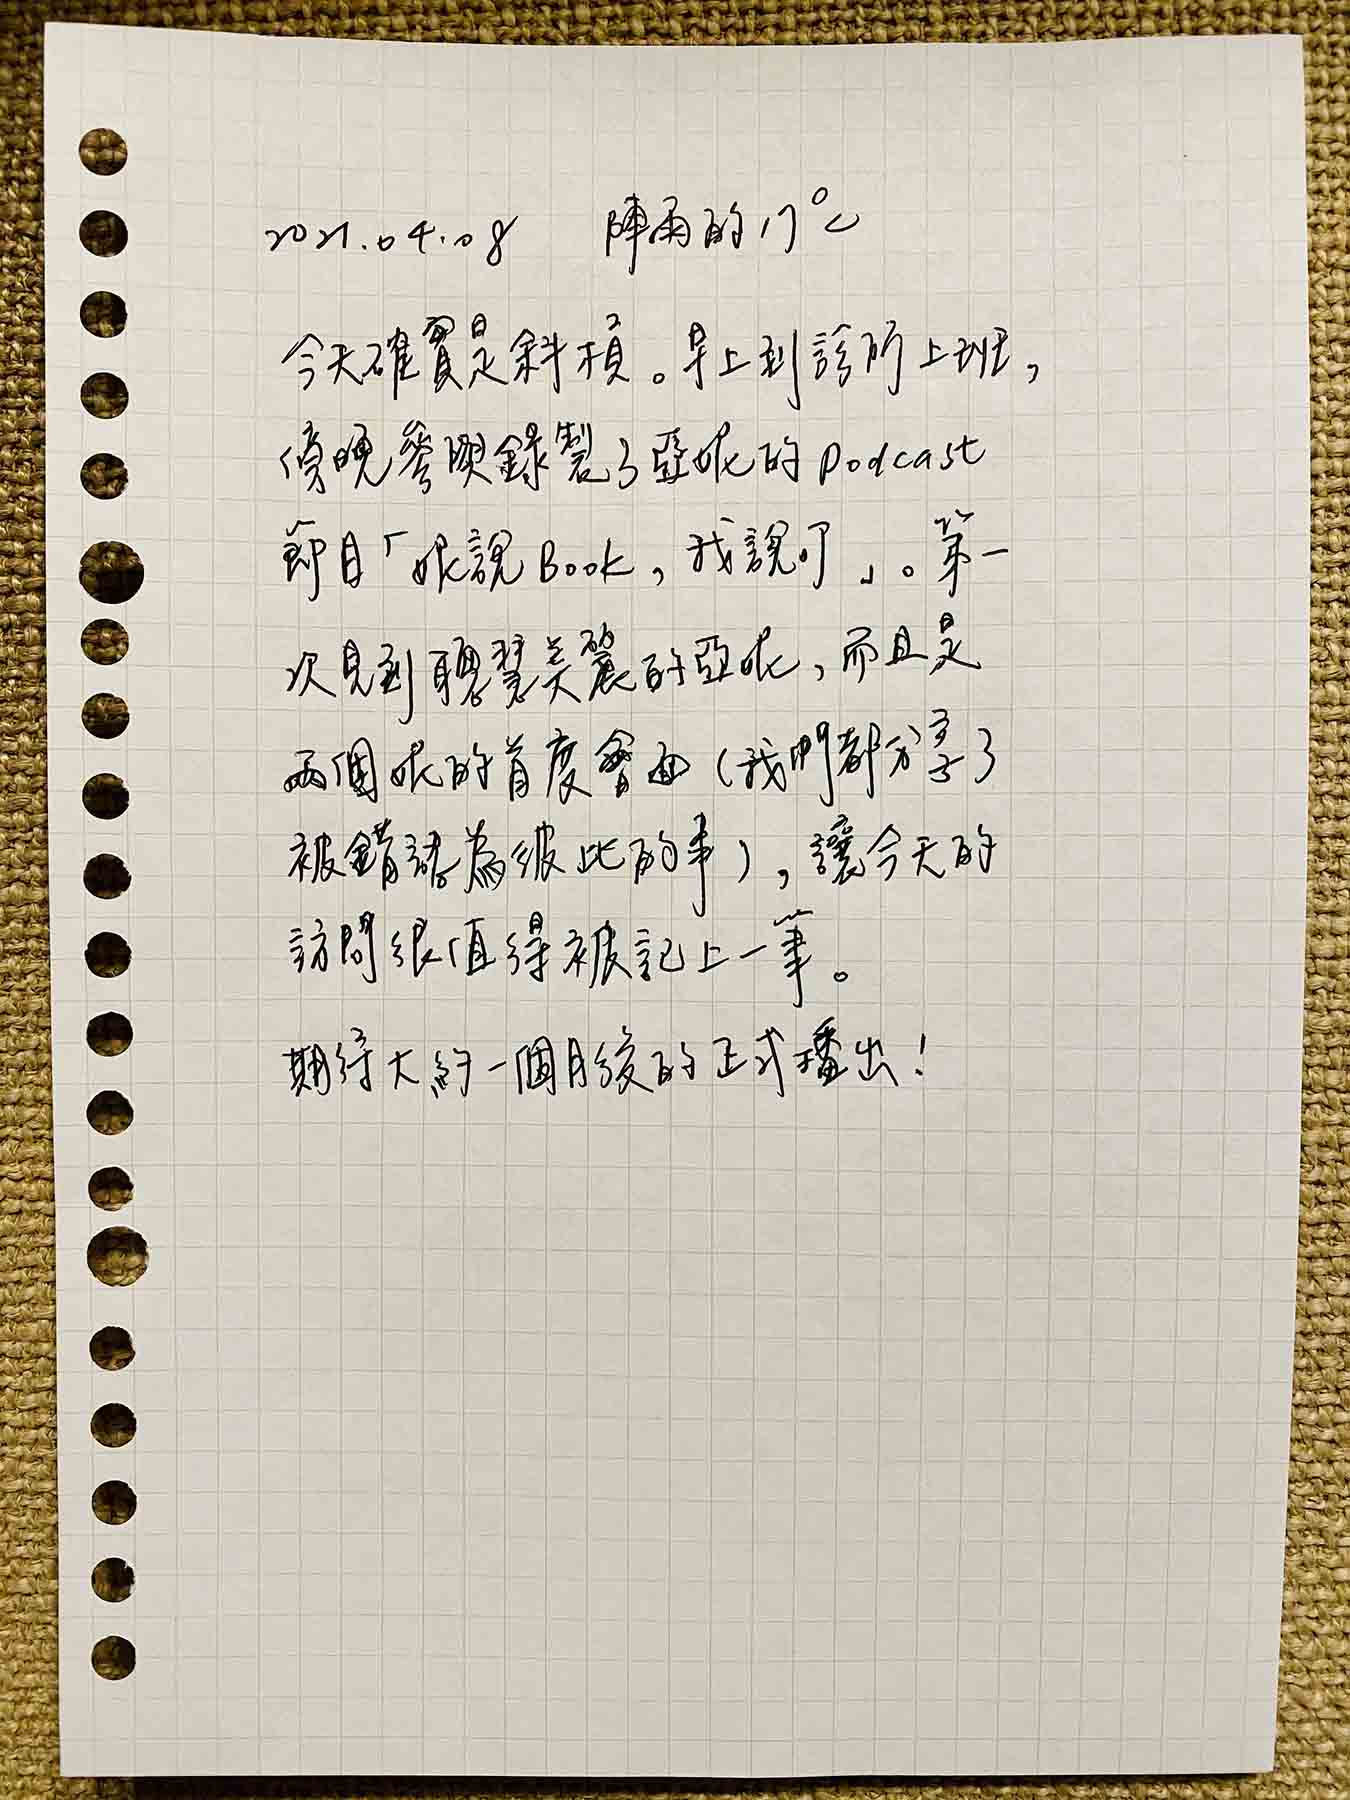 2021.04.08 陣雨的17℃
今天確實是斜槓。早上到診所上班,
傍晚參與錄製了亞妮的Podcast
節目「妮說Book,我說叮」。第一
次見到聰慧美麗的亞妮,而且是
兩個妮的首度會面(我們都分享了
被錯認為彼此的事),讓今天的
訪問很值得被記上一筆。
期待大約一個月後的正式播出!